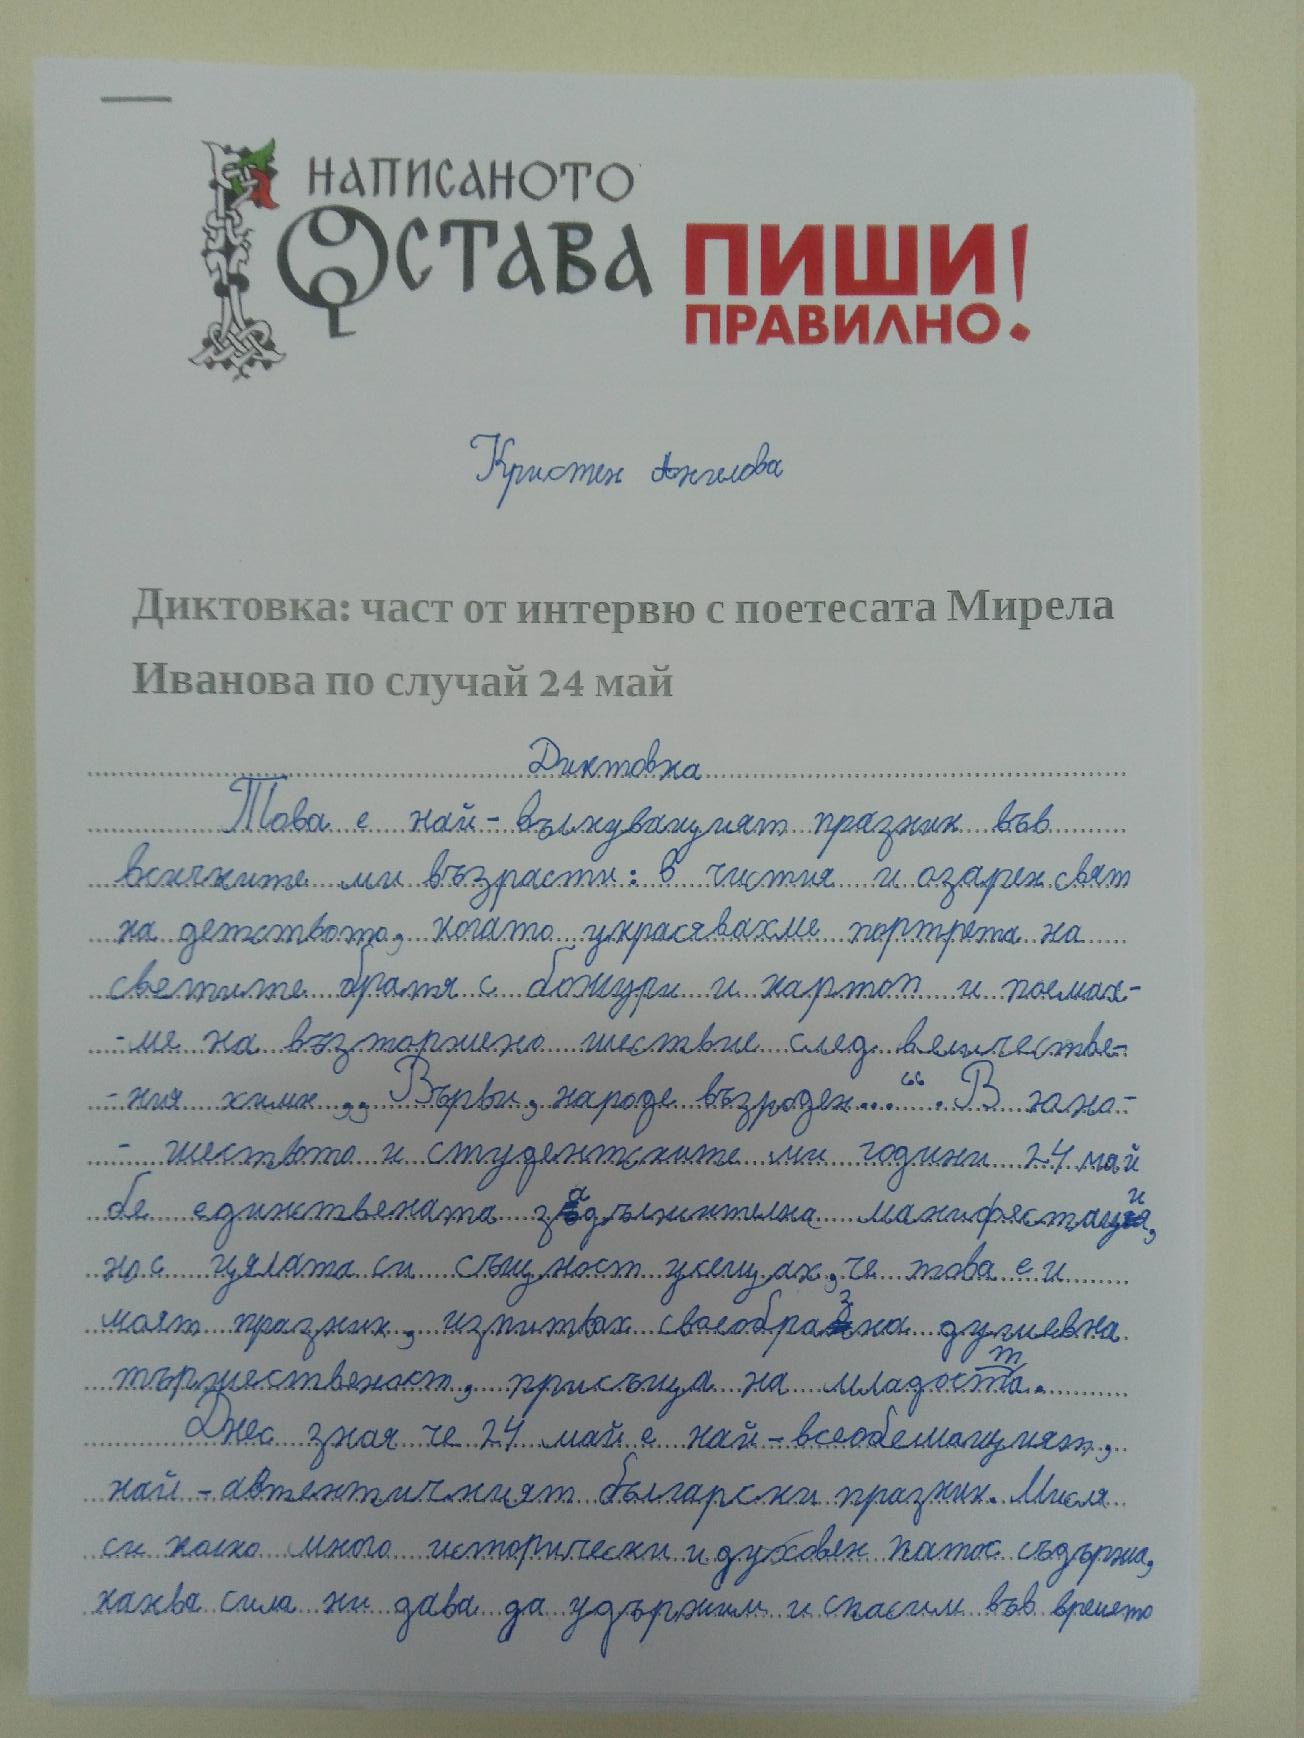 НАПИСАНОТО
ОСТАВА ПИШИ
ПРАВИЛНО!
Кристен Ангелова
Диктовка: част от интервю с поетесата Мирела
Иванова по случай 24 май
Диктовка
Това е най-вълнуващият празник във
всичките ми възрасти: в чистия и озарен свят
на детството, когато украсявахме портрета на
светите братя с божури и картоп и поемах-
-ме на възторжено шествие след величестве-
-ния химн ,,Върви, народе възроден...“. В юно-
- шеството и студентските ми години 24 май
бе единствената задължителна манифестация,
но с цялата си същност усещах, че това е и
моят празник, изпитвах своеобразна душевна
тържественост, присъща на младостта.
Днес зная че 24 май е най-всеобемащият,
най-автентичният български празник. Мисля
си колко много исторически и духовен патос съдържа,
каква сила ни дава да удържим и спасим във времето